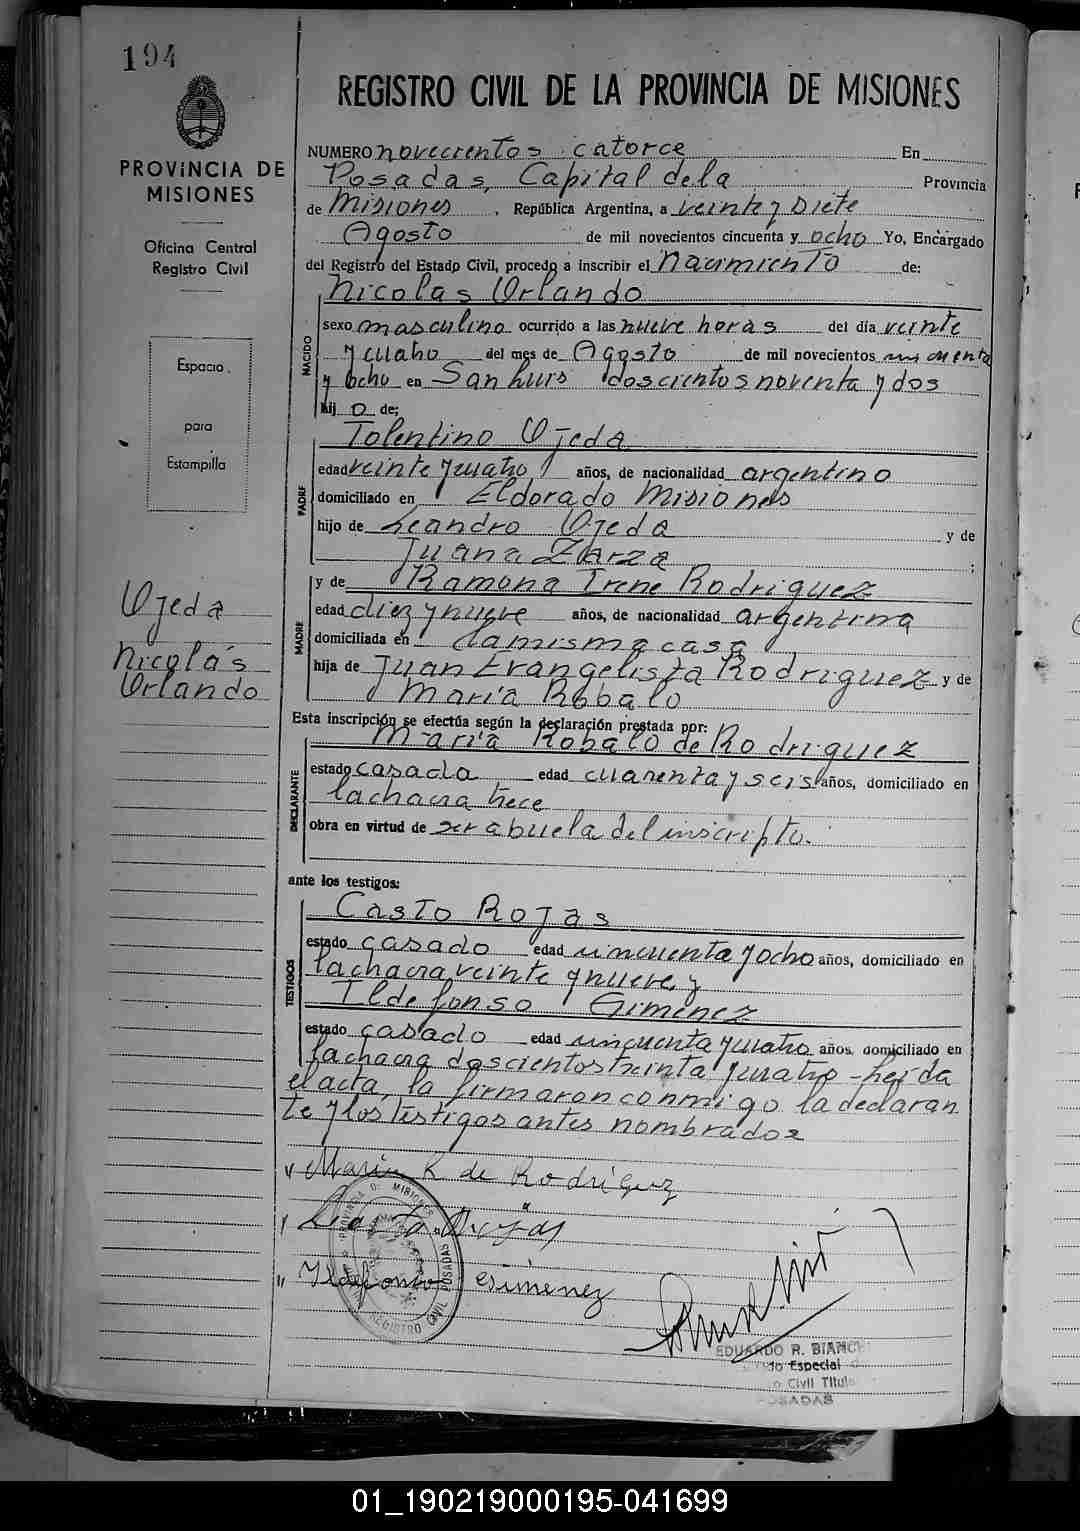 194
PROVINCIA DE
MISIONES
Oficina Central
Registro Civil
Espacio
para
Estampilla
Ojeda
Nicolás
Orlando
REGISTRO CIVIL DE LA PROVINCIA DE MISIONES
NUMERO novecientos catorce En
Posadas, Capital de la Provincia
de Misiones. República Argentina, a veinte y siete
Agosto de mil novecientos cincuenta y ocho Yo, Encargado
del Registro del Estado Civil, procedo a inscribir el nacimiento de:
NACIDO
Nicolas Orlando
sexo masculino ocurrido a las nueve horas del día veinte
y cuatro del mes de Agosto de mil novecientos cincuenta
y ocho en San Luis doscientos noventa y dos
hij o de;
PADRE
Tolentino Ojeda
edad veinte y cuatro años, de nacionalidad argentino
domiciliado en Eldorado Misiones
hijo de Leandro Ojeda y de
Juana Zarza ;
MADRE
y de Ramona Irene Rodriguez
edad diez y nueve años, de nacionalidad argentina
domiciliada en la misma casa
hija de Juan Evangelista Rodriguez y de
Maria Robalo
Esta inscripción se efectúa según la declaración prestada por:
DECLARANTE
Maria Robalo de Rodriguez
estado casada edad cuarenta y seis años, domiciliado en
la chacra trece
obra en virtud de ser abuela del inscripto.
ante los testigos:
TESTIGOS
Casto Rojas
estado casado edad cincuenta y ocho años, domiciliado en
la chacra veinte y nueve y
Ildefonso Gimenez
estado casado edad cincuenta y cuatro años, domiciliado en
la chacra doscientos treinta y cuatro - leída
el acta, la firmaron conmigo la declaran
te y los testigos antes nombrados
Maria R de Rodríguez
Casto Rojas
Ildefonso Gimenez
PROVINCIA DE MISIONES
REGISTRO CIVIL POSADAS
EDUARDO R. BIANCHI
do Especial
o Civil Titula
POSADAS
01_190219000195-041699